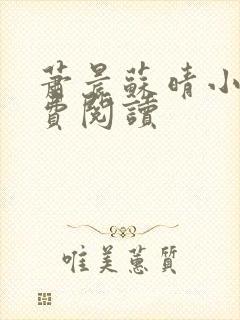 蕭晨蘇晴小
費閱讀
唯美蕙質